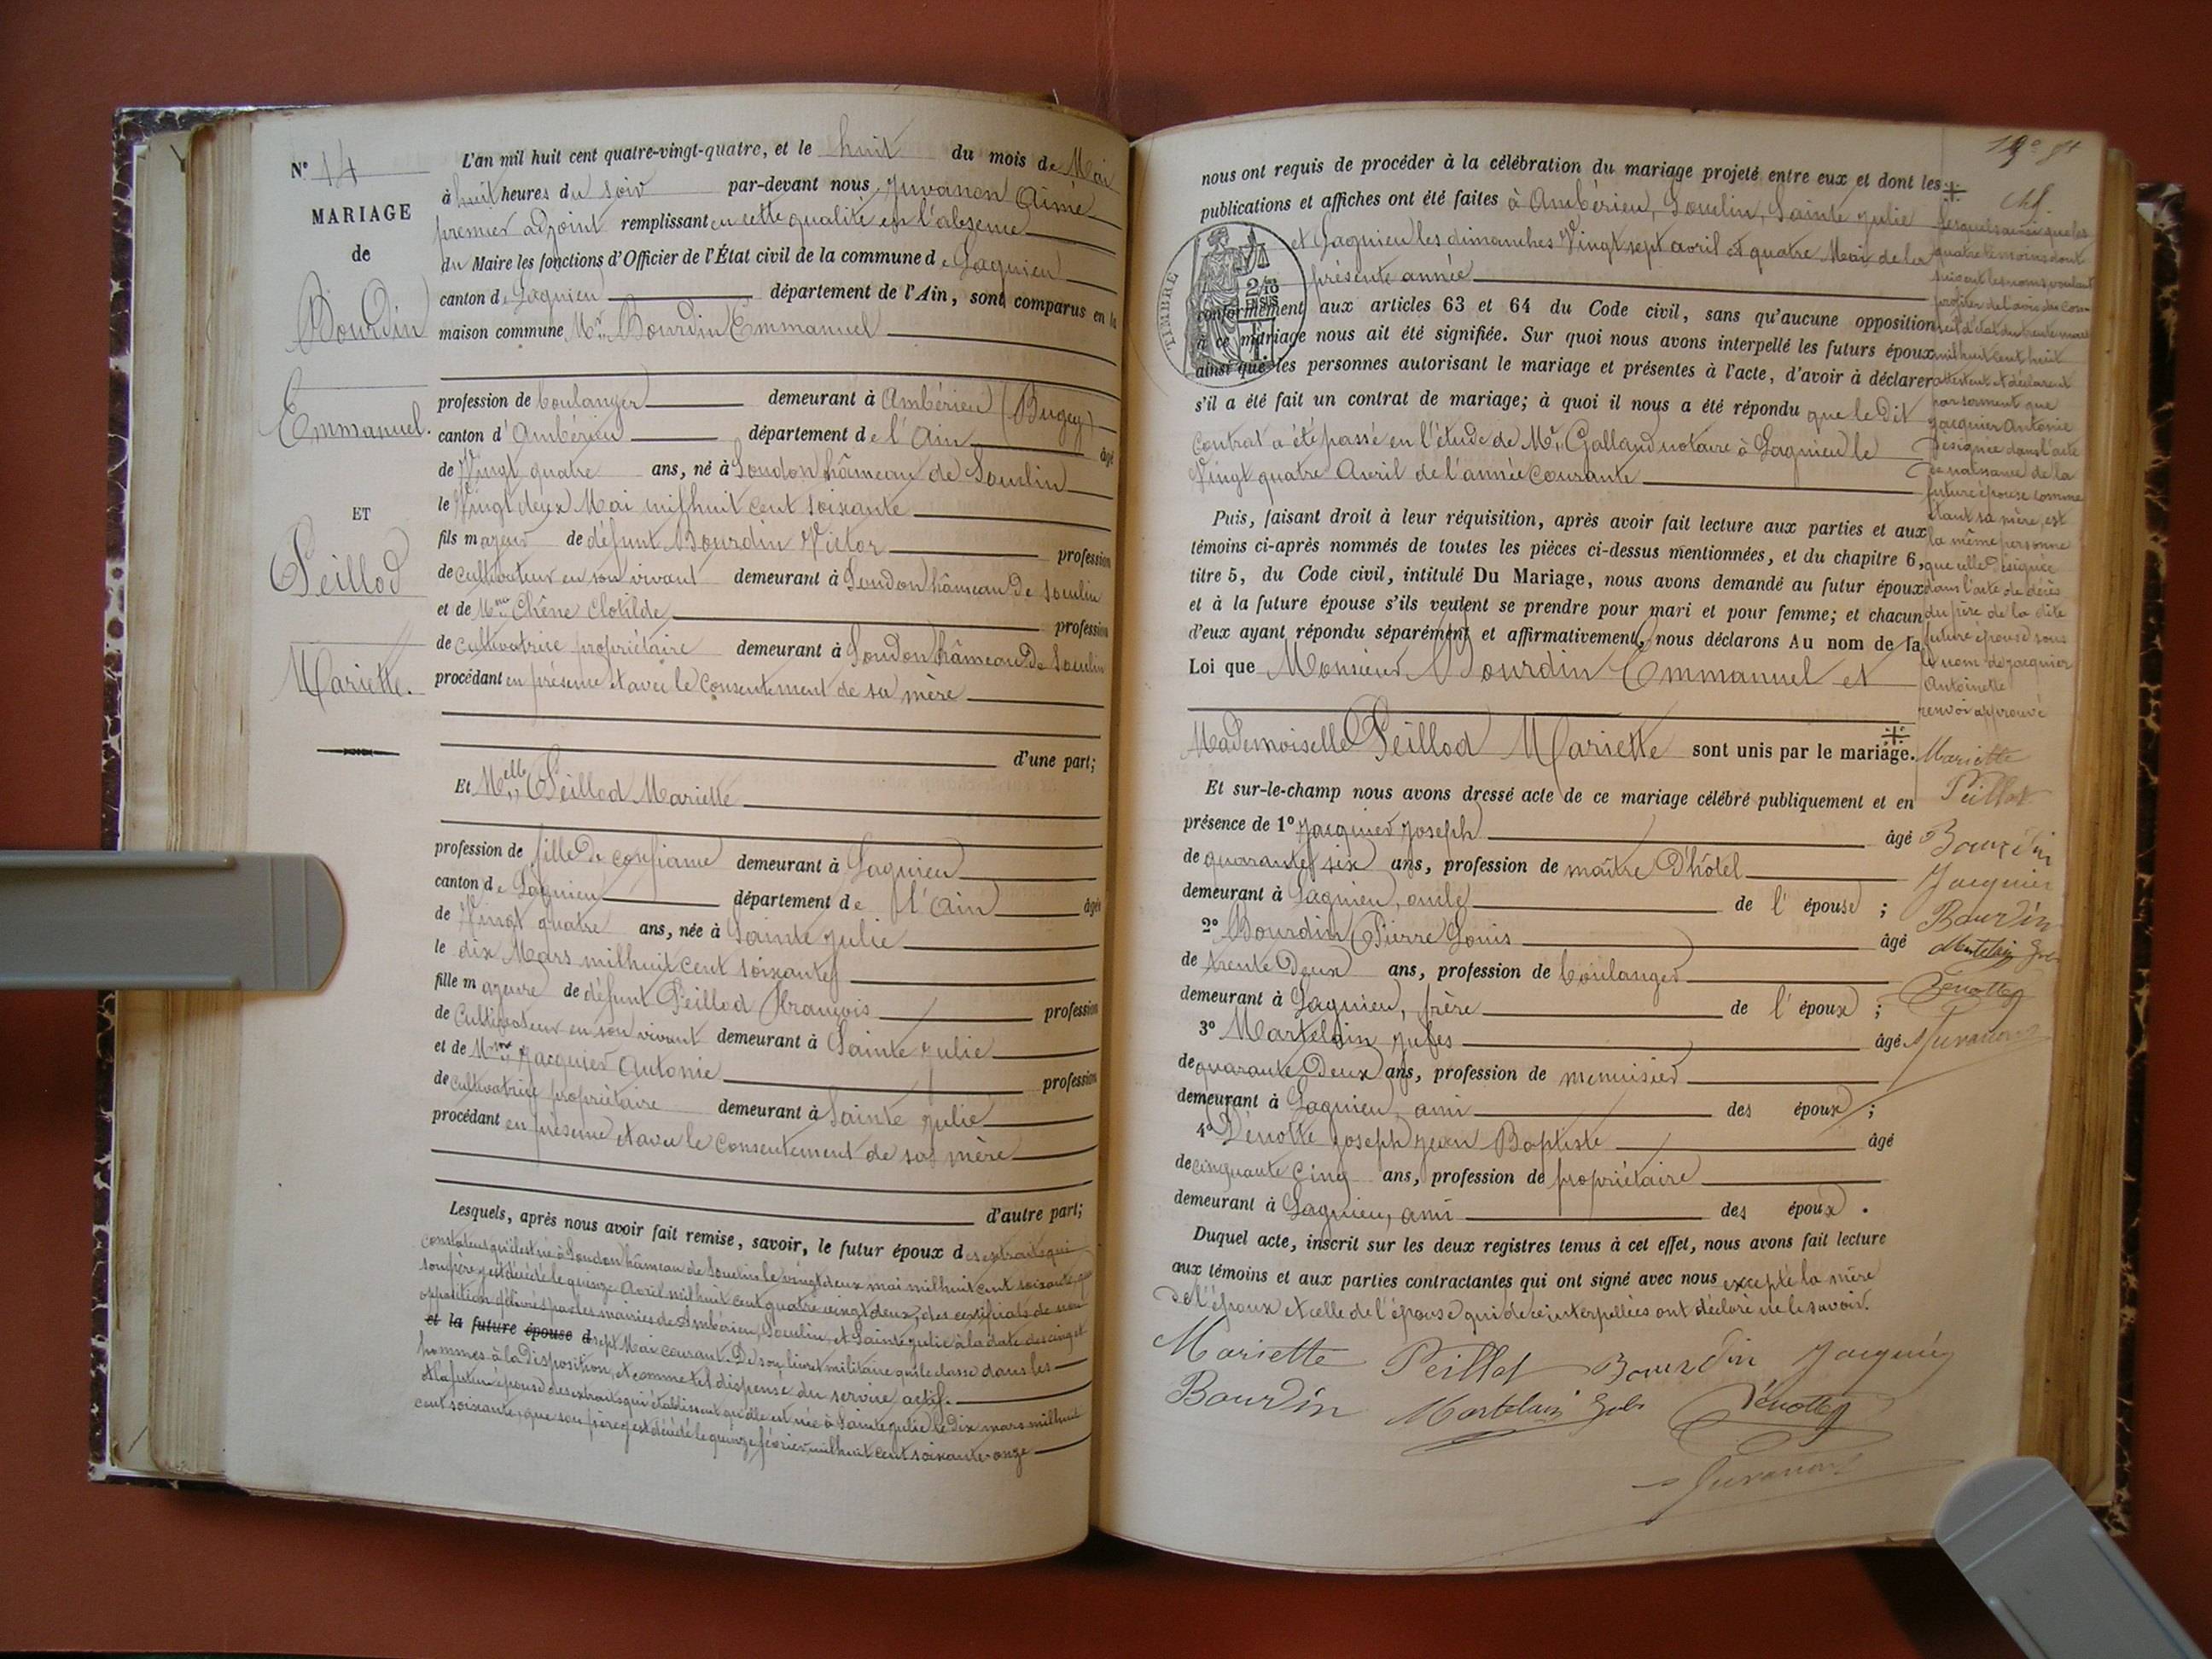 N° 14
MARIAGE
de
Bourdin
Emmanuel.
ET
Peillod
Mariette.
L'an mil huit cent quatre-vingt-quatre, et le huit du mois de Mai
à huit heures du soir par-devant nous Juvanon Aimé
premier adjoint remplissant en cette qualité en l'absence
du Maire les fonctions d'Officier de l'État civil de la commune de Lagnieu
canton de Lagnieu département de l'Ain, sont comparus en la
maison commune Mr. Bourdin Emmanuel
profession de boulanger demeurant à Ambérieu (Bugey)
canton d'Ambérieu département de l'Ain âgé
de Vingt quatre ans, né à Soudon hâmeau de Souclin
le Vingt deux Mai mil huit cent soixante
fils majeur de défunt Bourdin Victor profession
de cultivateur en son vivant demeurant à Soudon hâmeau de Souclin
et de Mme Chêne Clotilde profession
de cultivatrice propriétaire demeurant à Soudon hâmeau de Souclin
procédant en présence et avec le consentement de sa mère
d'une part;
Et Melle Peillod Mariette
profession de fille de confiance demeurant à Lagnieu
canton de Lagnieu département de l'Ain âgée
de Vingt quatre ans, née à Sainte Julie
le dix Mars mil huit cent soixante
fille majeure de défunt Peillod François profession
de Cultivateur en son vivant demeurant à Sainte Julie
et de Mme Jacquier Antonie profession
de cultivatrice propriétaire demeurant à Sainte Julie
procédant en présence et avec le consentement de sa mère
d'autre part;
Lesquels, après nous avoir fait remise, savoir, le futur époux des extraits qui
constatent qu'il est né à Soudon hâmeau de Souclin le vingt deux mai mil huit cent soixante, que
son père y est décédé le quinze Avril mil huit cent quatre vingt deux, des certificats de non
opposition délivrés par les mairies de Ambérieu, Souclin, et Sainte Julie à la date des cinq et
et la future épouse d sept Mai courant. De son livret militaire qui le classe dans les
hommes à la disposition, et comme tel dispensé du service actif.
et la future épouse des extraits qui établissent qu'elle est née à Sainte Julie le dix mars mil huit
cent soixante, que son père y est décédé le quinze février mil huit cent soixante-onze
nous ont requis de procéder à la célébration du mariage projeté entre eux et dont les
publications et affiches ont été faites à Ambérieu, Souclin, Sainte Julie
et Lagnieu les dimanches Vingt sept avril et quatre Mai de la
présente année
TIMBRE
2/10 EN SUS
conformément aux articles 63 et 64 du Code civil, sans qu'aucune opposition
à ce mariage nous ait été signifiée. Sur quoi nous avons interpellé les futurs époux
ainsi que les personnes autorisant le mariage et présentes à l'acte, d'avoir à déclarer
s'il a été fait un contrat de mariage; à quoi il nous a été répondu que le dit
Contrat a été passé en l'étude de Mr. Galland notaire à Lagnieu le
Vingt quatre Avril de l'année Courante
Puis, faisant droit à leur réquisition, après avoir fait lecture aux parties et aux
témoins ci-après nommés de toutes les pièces ci-dessus mentionnées, et du chapitre 6,
titre 5, du Code civil, intitulé Du Mariage, nous avons demandé au futur époux
et à la future épouse s'ils veulent se prendre pour mari et pour femme; et chacun
d'eux ayant répondu séparément et affirmativement, nous déclarons Au nom de la
Loi que Monsieur Bourdin Emmanuel et
Mademoiselle Peillod Mariette sont unis par le mariage.
Et sur-le-champ nous avons dressé acte de ce mariage célébré publiquement et en
présence de 1° Jacquier Joseph âgé
de quarante six ans, profession de maître d'hôtel
demeurant à Lagnieu, oncle de l'épouse ;
2° Bourdin Pierre Louis âgé
de trente Deux ans, profession de boulanger
demeurant à Lagnieu, frère de l'époux ;
3° Martelain Jules âgé
de quarante Deux ans, profession de menuisier
demeurant à Lagnieu, ami des époux ;
4° Dénotte Joseph Jean Baptiste âgé
de cinquante Cinq ans, profession de propriétaire
demeurant à Lagnieu, ami des époux .
Duquel acte, inscrit sur les deux registres tenus à cet effet, nous avons fait lecture
aux témoins et aux parties contractantes qui ont signé avec nous excepté la mère
de l'époux et celle de l'épouse qui de ce interpellées ont déclaré ne le savoir.
Mariette Peillot Bourdin Jacquier
Bourdin Martelain Jules Dénotte
Juvanon
Lesquels ainsi que les
quatre témoins dont
suivent les noms voulant
profiter de l'avis du Con-
seil d'état du trente mars
mil huit cent huit
attestent et déclarent
par serment que
Jacquier Antonie
Désignée dans l'acte
de naissance de la
future épouse comme
étant sa mère, est
la même personne
que celle Désignée
dans l'acte de décès
du père de la dite
future épouse sous
le nom de Jacquier
Antoinette
renvoi approuvé
Mariette
Peillot
Bourdin
Jacquier
Bourdin
Martelain Jules
Dénotte
Juvanon